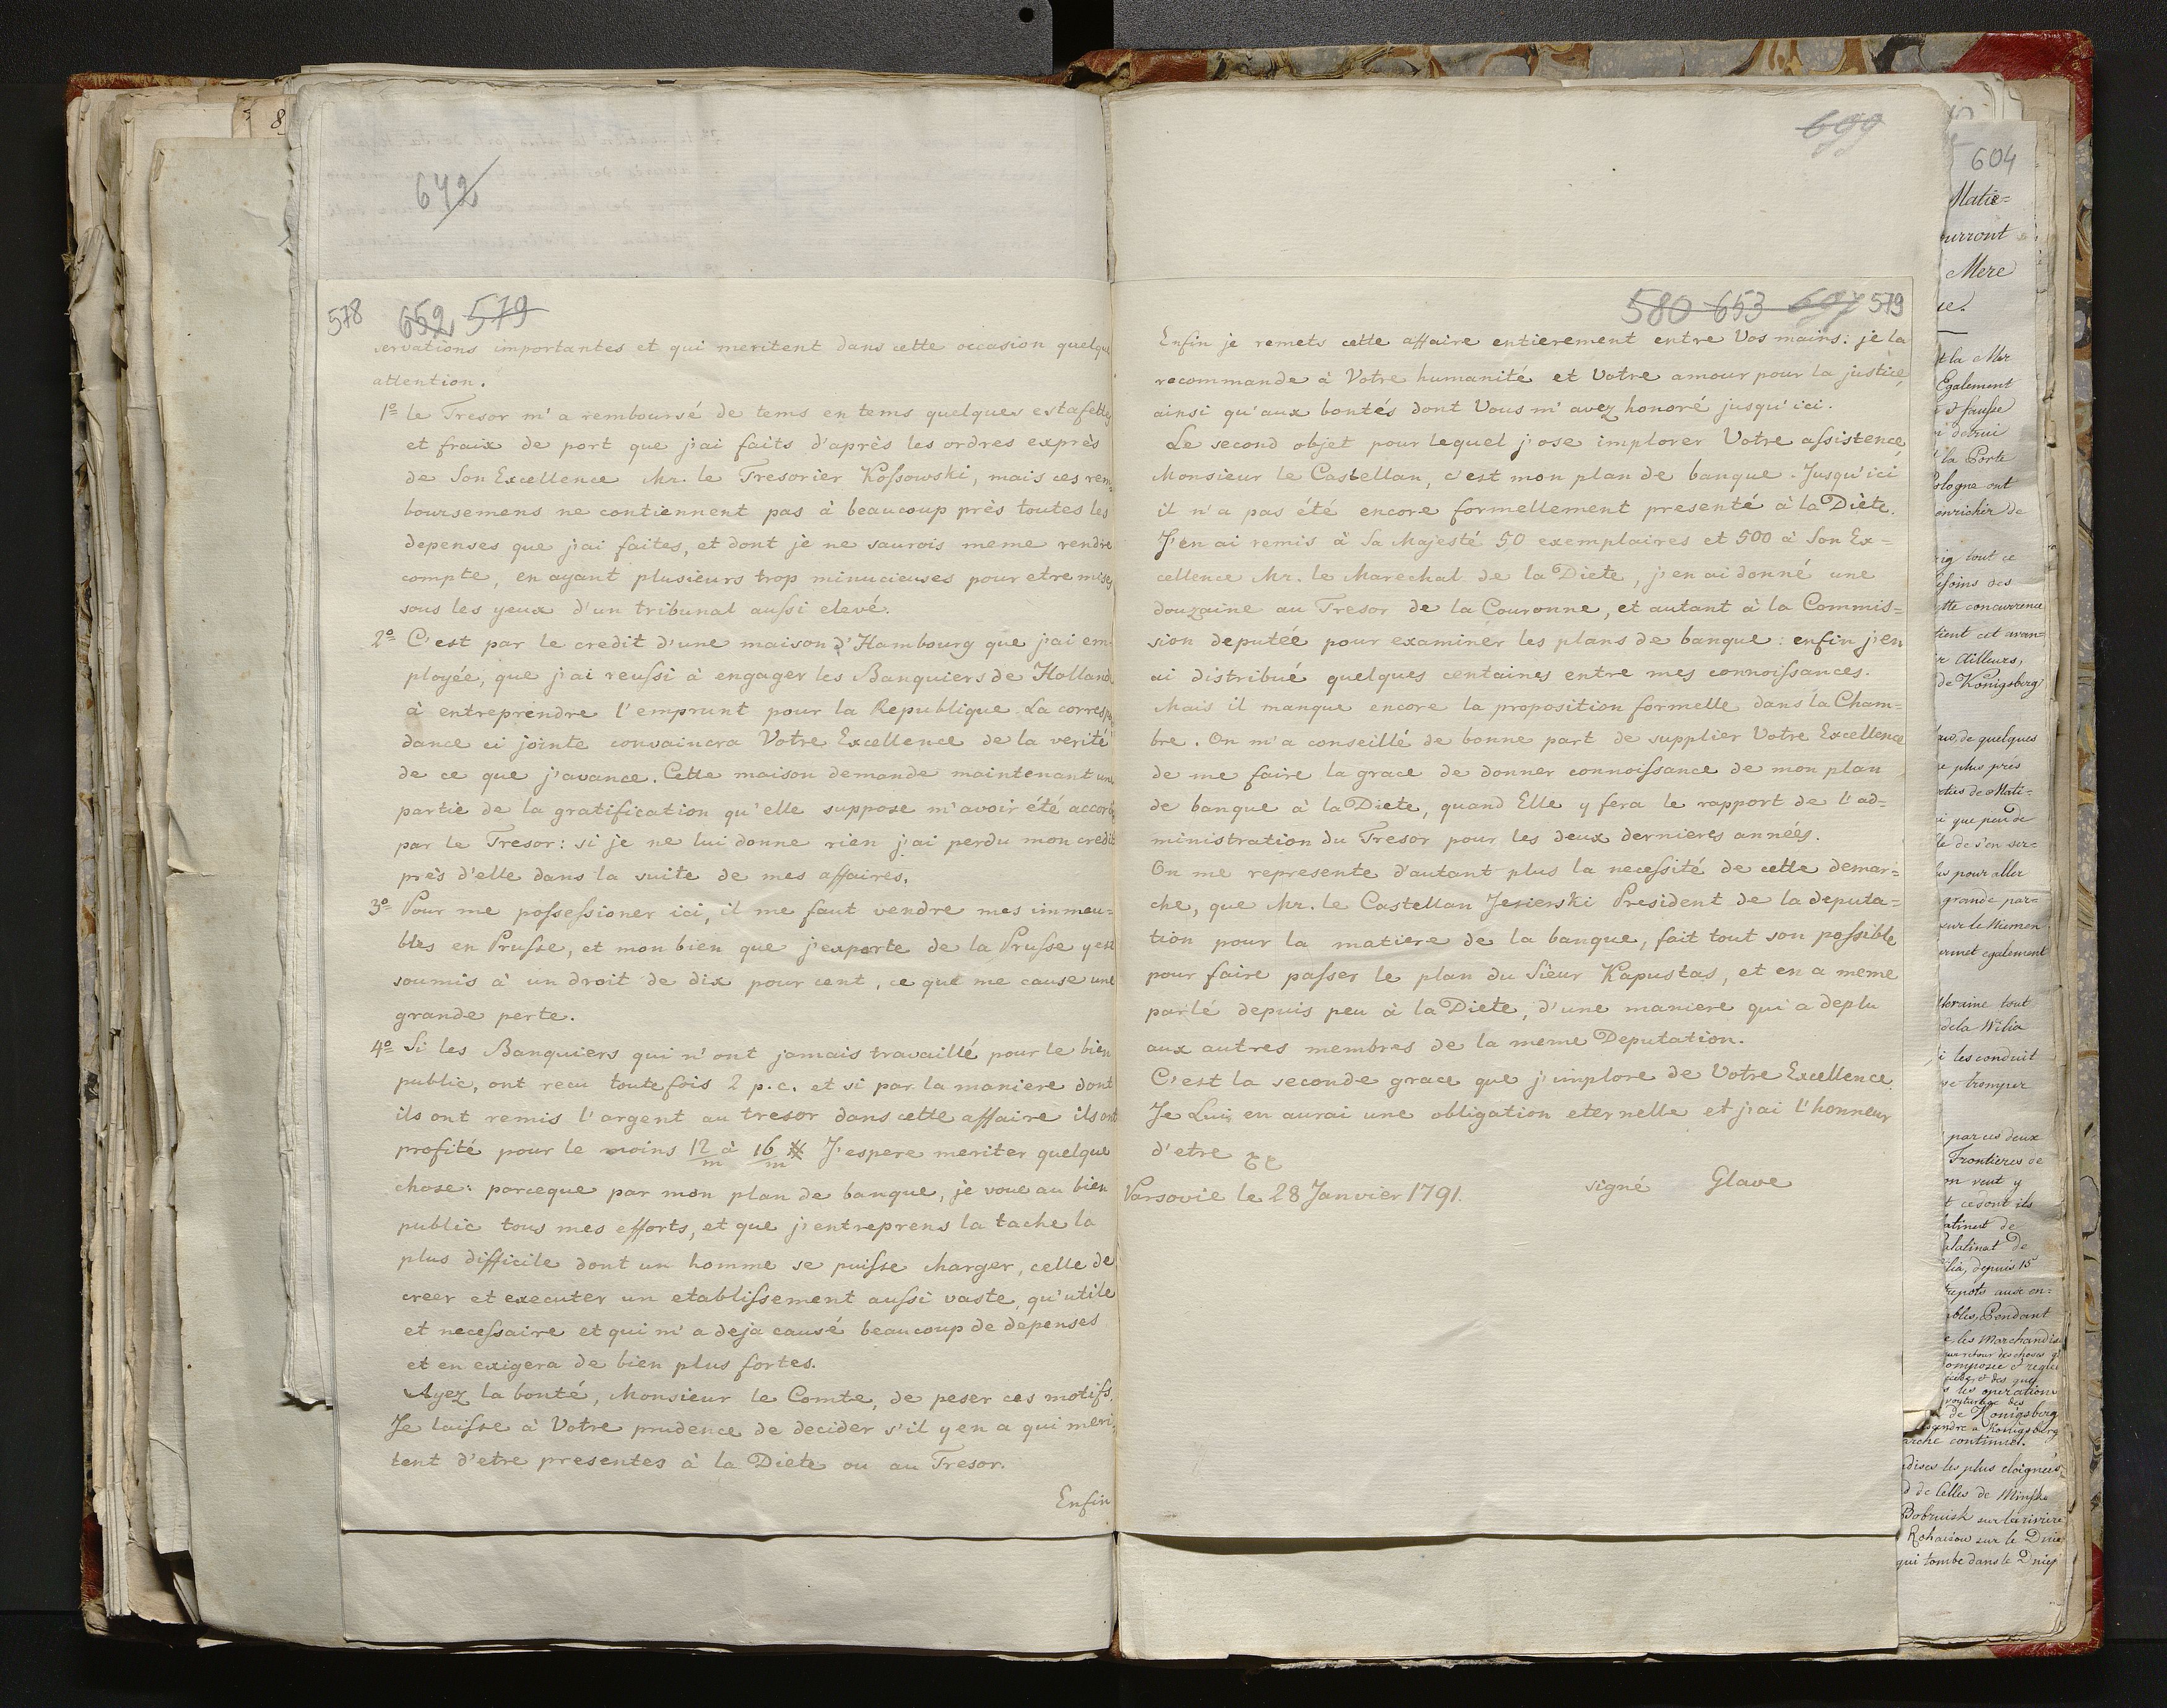 642
578 652 579
servations importantes et qui meritent dans cette occasion quelqu
attention.
1º le Tresor m'a remboursé de tems en tems quelques estafettes
et fraix de port que j'ai faits d'après les ordres exprès
de Son Excellence Mr. le Tresorier Kossowski, mais ces rem-
boursemens ne contiennent pas à beaucoup près toutes les
depenses que j'ai faites, et dont je ne saurois meme rendre
compte, en ayant plusieurs trop minucieuses pour etre mises
sous les yeux d'un tribunal aussi elevé.
2º C'est par le credit d'une maison d'Hambourg que j'ai em-
ployée, que j'ai reussi à engager les Banquiers de Holland
à entreprendre l'emprunt pour la Republique. La correspon
dance ci jointe convaincra Votre Excellence de la verité
de ce que j'avance. Cette maison demande maintenant une
partie de la gratification qu'elle suppose m'avoir été accord
par le Tresor: si je ne lui donne rien j'ai perdu mon credit
près d'elle dans la suite de mes affaires.
3º Pour me possessioner ici, il me faut vendre mes immeu=
bles en Prusse, et mon bien que j'exporte de la Prusse y est
soumis à un droit de dix pour cent, ce que me cause une
grande perte.
4º Si les Banquiers qui n'ont jamais travaillé pour le bien
public, ont recu toutefois 2 p.c. et si par la maniere dont
ils ont remis l'argent au tresor dans cette affaire ils ont
profité pour le moins 12/m à 16/m # J'espere meriter quelque
chose: parceque par mon plan de banque, je voue au bien
public tous mes efforts, et que j'entreprens la tache la
plus difficile dont un homme se puisse charger, celle de
creer et executer un etablissement aussi vaste, qu'utile
et necessaire et qui m'a deja causé beaucoup de depenses
et en exigera de bien plus fortes.
Ayez la bonté, Monsieur le Comte, de peser ces motifs.
Je laisse à Votre prudence de decider s'il y en a qui meri-
tent d'etre presentes à la Diete ou au Tresor.
Enfin
699
580 653 697 579
Enfin je remets cette affaire entierement entre Vos mains: je la
recommande à Votre humanité et Votre amour pour la justice,
ainsi qu'aux bontés dont Vous m'avez honoré jusqu'ici.
Le second objet pour lequel j'ose implorer Votre assistence,
Monsieur le Castellan, c'est mon plan de banque. Jusqu'ici
il n'a pas été encore formellement presenté à la Diète.
J'en ai remis à Sa Majesté 50 exemplaires et 500 à Son Ex=
cellence Mr. le Marechal de la Diete, j'en ai donné une
douzaine au Tresor de la Couronne, et autant à la Commis=
sion deputée pour examiner les plans de banque: enfin j'en
ai distribué quelques centaines entre mes connoissances.
Mais il manque encore la proposition formelle dans la Cham=
bre. On m'a conseillé de bonne part de supplier Votre Excellence
de me faire la grace de donner connoissance de mon plan
de banque à la Diete, quand Elle y fera le rapport de l'ad=
ministration du Tresor pour les deux dernieres années.
On me represente d'autant plus la necessité de cette demar=
che, que Mr. le Castellan Jezierski President de la deputa=
tion pour la matiere de la banque, fait tout son possible
pour faire passer le plan du Sieur Kapustas, et en a meme
parlé depuis peu à la Diete, d'une maniere qui a deplu
aux autres membres de la meme Deputation.
C'est la seconde grace que j'implore de Votre Excellence.
Je Lui en aurai une obligation eternelle et j'ai l'honneur
d'etre
Varsovie le 28 Janvier 1791. signé Glave
604
Matie=
urront
Mere
ue.
t la Mer
Egalement
la Porte
ologne ont
enrichir de
tout ce
esoins des
tte concurrence
tient cet avan=
Ailleurs,
de Königsberg
de quelques
plus près
que peu de
de s'en ser=
pour aller
grande par=
sur le Niemen
ermet egalement
Ukraine tout
de la Wilia
i les conduit
se tromper
par ces deux
Frontieres de
on veut y
t ce dont ils
alatinat de
depuis 15
Pendant
les Marchandis
les operations
de Königsberg
à Königsberg
arche continuel.
dises les plus eloignées
de Celles de Minsk
Bobruisk sur la riviere
Rohaczow sur le Dnie
qui tombe dans le Dniep